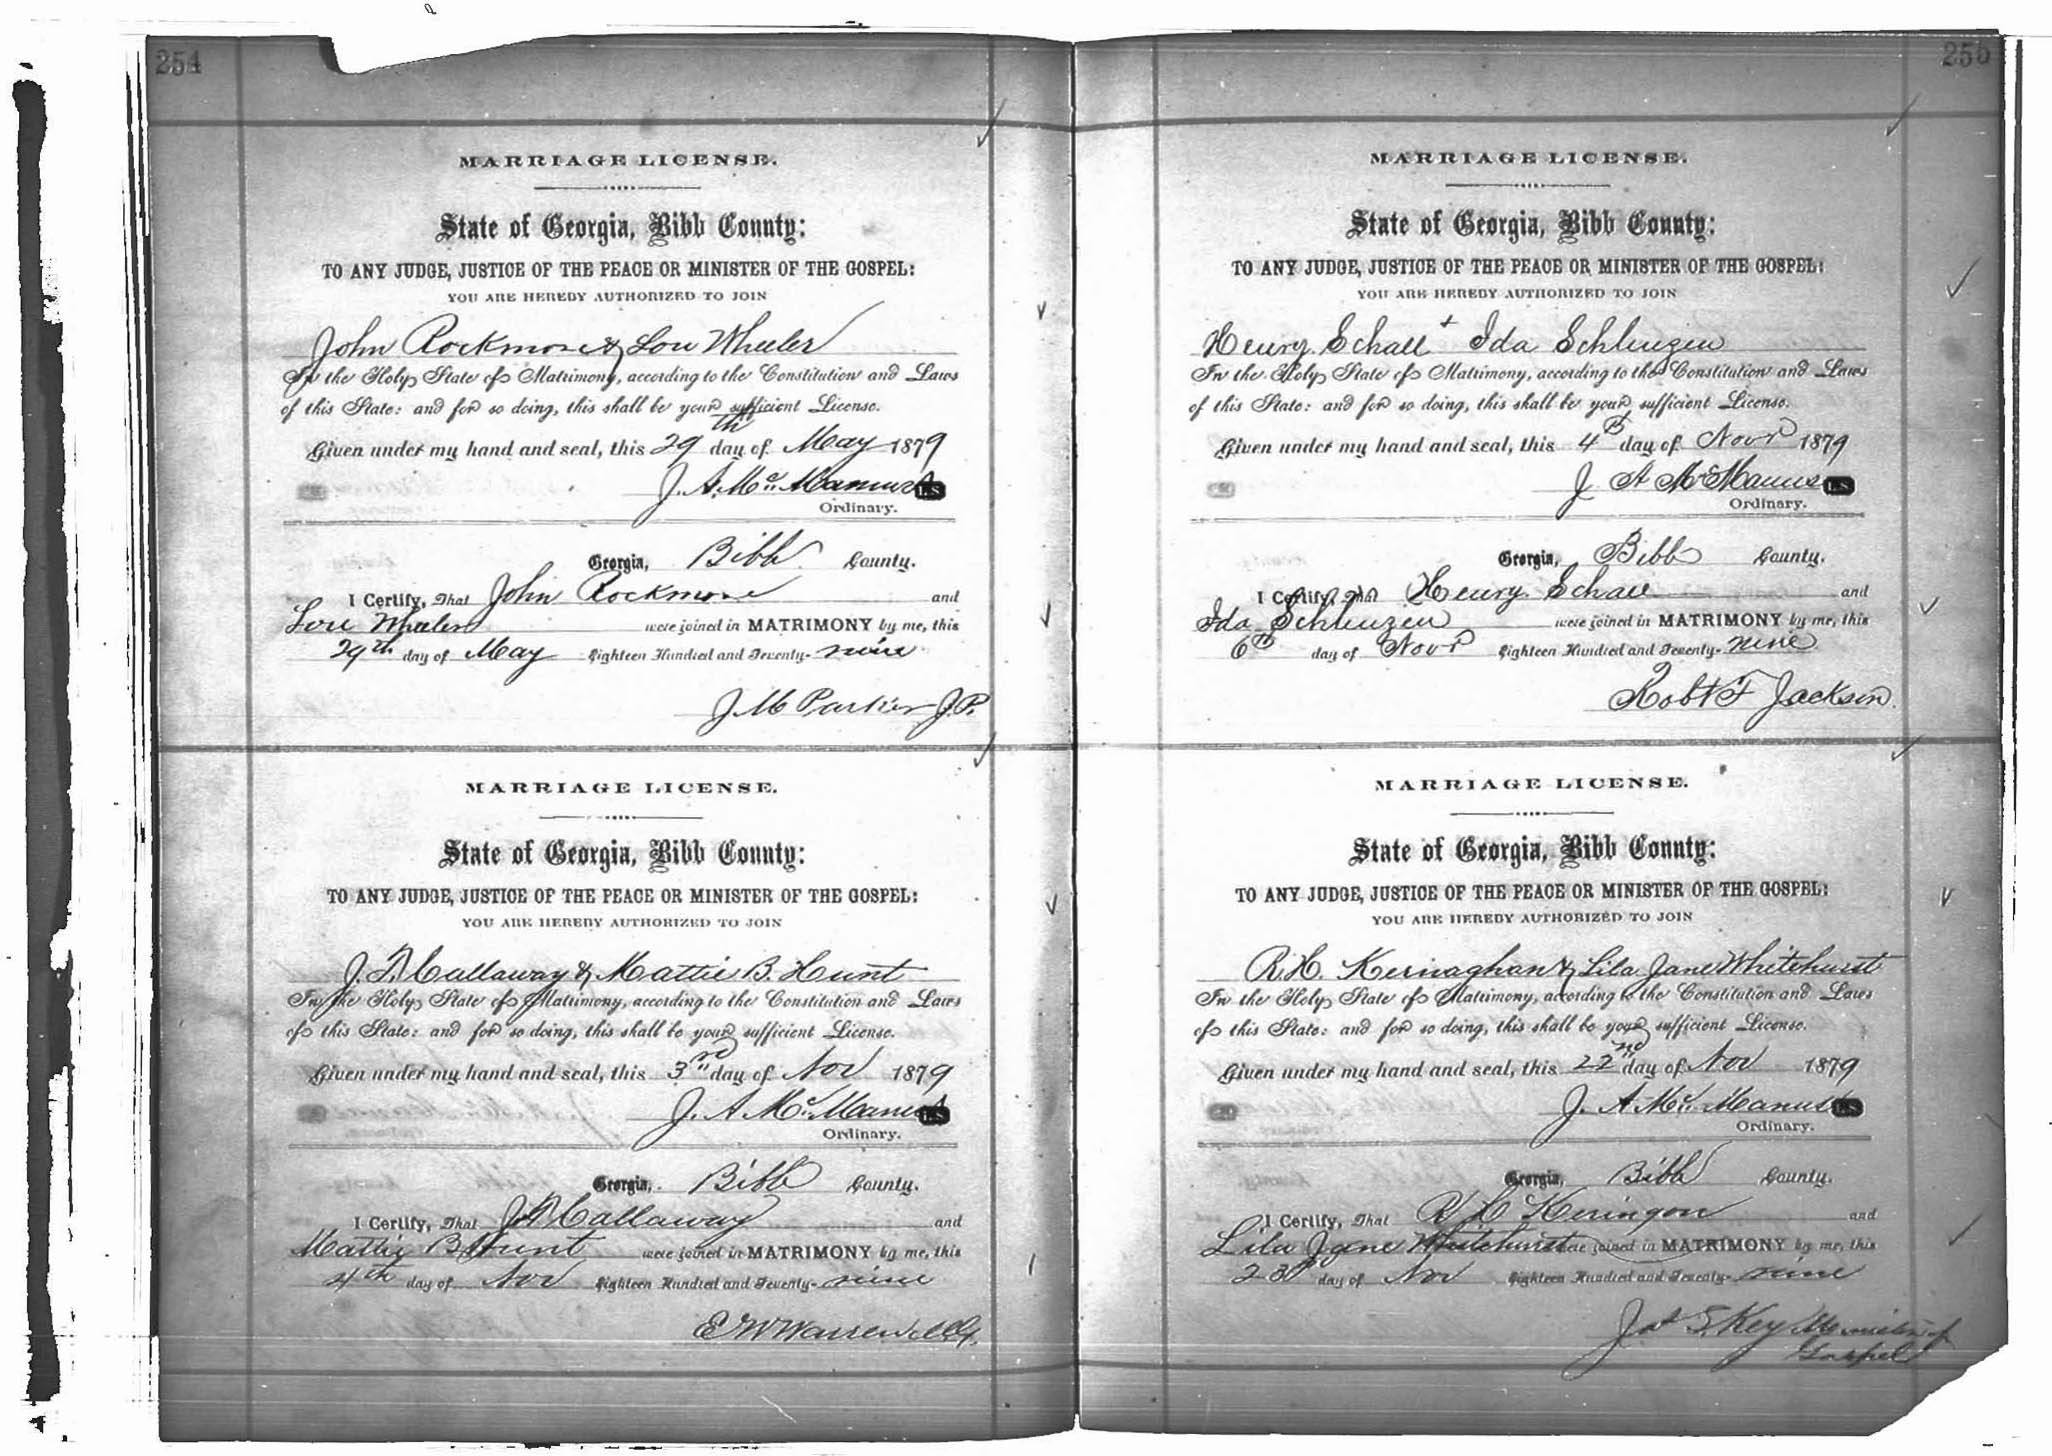 254
MARRIAGE LICENSE.
State of Georgia, Bibb County:
TO ANY JUDGE, JUSTICE OF THE PEACE OR MINISTER OF THE GOSPEL:
YOU ARE HEREBY AUTHORIZED TO JOIN
John Rockmore & Lou Wheeler
In the Holy State of Matrimony, according to the Constitution and Laws
of this State: and for so doing, this shall be your sufficient License.
Given under my hand and seal, this 29th day of May 1879
J. A. McManus L.S
Ordinary.
Georgia, Bibb County.
I Certify, That John Rockmore and
Lou Wheeler were joined in MATRIMONY by me, this
29th day of May Eighteen Hundred and Seventy-nine
J M Parker J.P.
MARRIAGE LICENSE.
State of Georgia, Bibb County:
TO ANY JUDGE, JUSTICE OF THE PEACE OR MINISTER OF THE GOSPEL:
YOU ARE HEREBY AUTHORIZED TO JOIN
Callaway & Mattie B. Hunt
In the Holy State of Matrimony, according to the Constitution and Laws
of this State: and for so doing, this shall be your sufficient License.
Given under my hand and seal, this 3rd day of Nov 1879
J. A McManus L.S
Ordinary.
Georgia, Bibb County.
I Certify, That Callaway and
Mattie B Hunt were joined in MATRIMONY by me, this
4th day of Nov Eighteen Hundred and Seventy-nine
E W Warren
255
MARRIAGE LICENSE.
State of Georgia, Bibb County:
TO ANY JUDGE, JUSTICE OF THE PEACE OR MINISTER OF THE GOSPEL:
YOU ARE HEREBY AUTHORIZED TO JOIN
Henry Schall + Ida Schlenzen
In the Holy State of Matrimony, according to the Constitution and Laws
of this State: and for so doing, this shall be your sufficient License.
Given under my hand and seal, this 4th day of Novr 1879
J A McManus L.S
Ordinary.
Georgia, Bibb County.
I Certify, That Henry Schall and
Ida Schlenzen were joined in MATRIMONY by me, this
6th day of Novr Eighteen Hundred and Seventy-nine
Robt F Jackson
MARRIAGE LICENSE.
State of Georgia, Bibb County:
TO ANY JUDGE, JUSTICE OF THE PEACE OR MINISTER OF THE GOSPEL:
YOU ARE HEREBY AUTHORIZED TO JOIN
R. H. Kernaghan & Lila Jane Whitehurst
In the Holy State of Matrimony, according to the Constitution and Laws
of this State: and for so doing, this shall be your sufficient License.
Given under my hand and seal, this 22nd day of Nov 1879
J. A McManus L.S
Ordinary.
Georgia, Bibb County.
I Certify, That R H Keringon and
Lila Jane Whitehurst were joined in MATRIMONY by me, this
23d day of Nov Eighteen Hundred and Seventy-nine
Jas S Key Minister of
Gospel